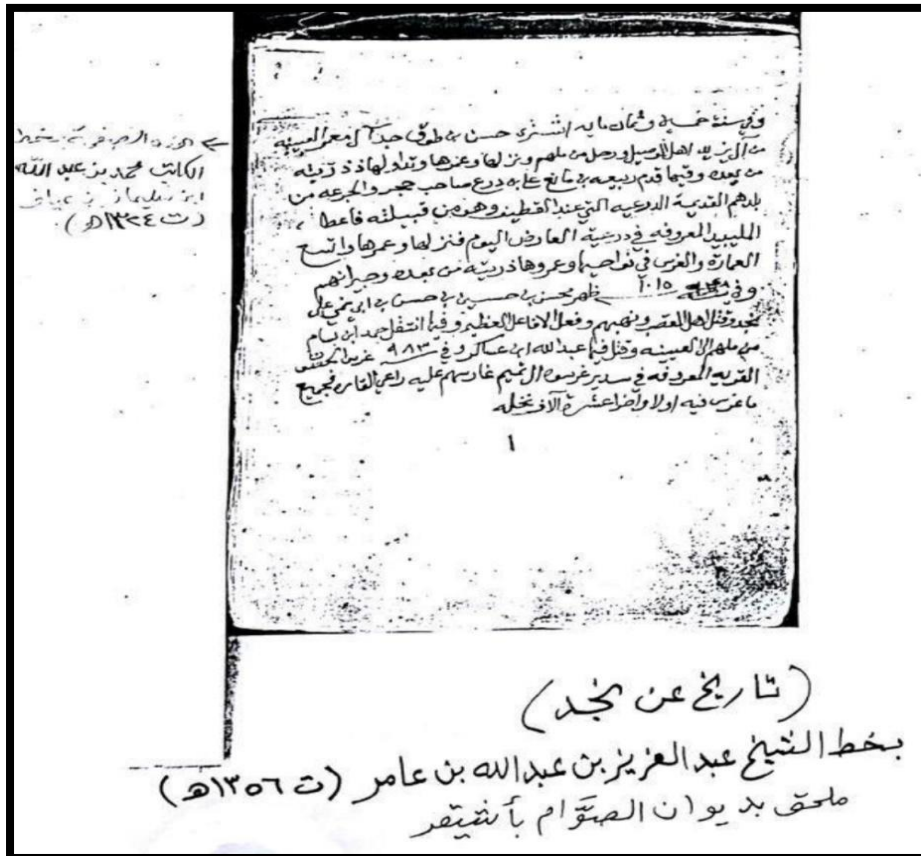 وفي سنة خمسين وثمان مايه اشترى حسن بن طوق جد آل معمر العيينه
من آل يزيد اهل الوصيل ورحل من ملهم ونزلها وعمرها وتداولها ذريته
من بعده وفيها قدم ربيعه بن مانع على بن درع صاحب حجر والجزعه من
بلدهم القديمة الدرعيه التي عند القطيف وهو من قبيلته فاعطاه
المليبيد المعروفه في درعية العارض اليوم فنزلها وعمرها واتسع
العمارة والغرس في نواحيها وعمروها ذريته من بعده وجيرانهم
وفي سنة ١٠١٥ ظهر محسن بن حسين بن حسن بن ابي نمي على
نجد وقتل اهل القصب ونهبهم وفعل الافاعل العظيم وفيها انتقل حمد ابن بسام
من ملهم الى العيينه وقتل فيها عبد الله ابن عساكر وفي سنة ٩٨٣ غرس
القريه المعروفه في سدير غرسوه ال تميم غارسهم عليه راعي القاره فجميع
ما غرس فيه اولا واخرا عشرة الاف نخله
١
الكاتب محمد بن عبد الله
ابن سليمان بن
(ت ١٣٢٤هـ)
(تاريخ عن نجد)
بخط الشيخ عبد العزيز بن عبد الله بن عامر (ت ١٣٥٦هـ)
ملحق بديوان الصوَّام بأشيقر